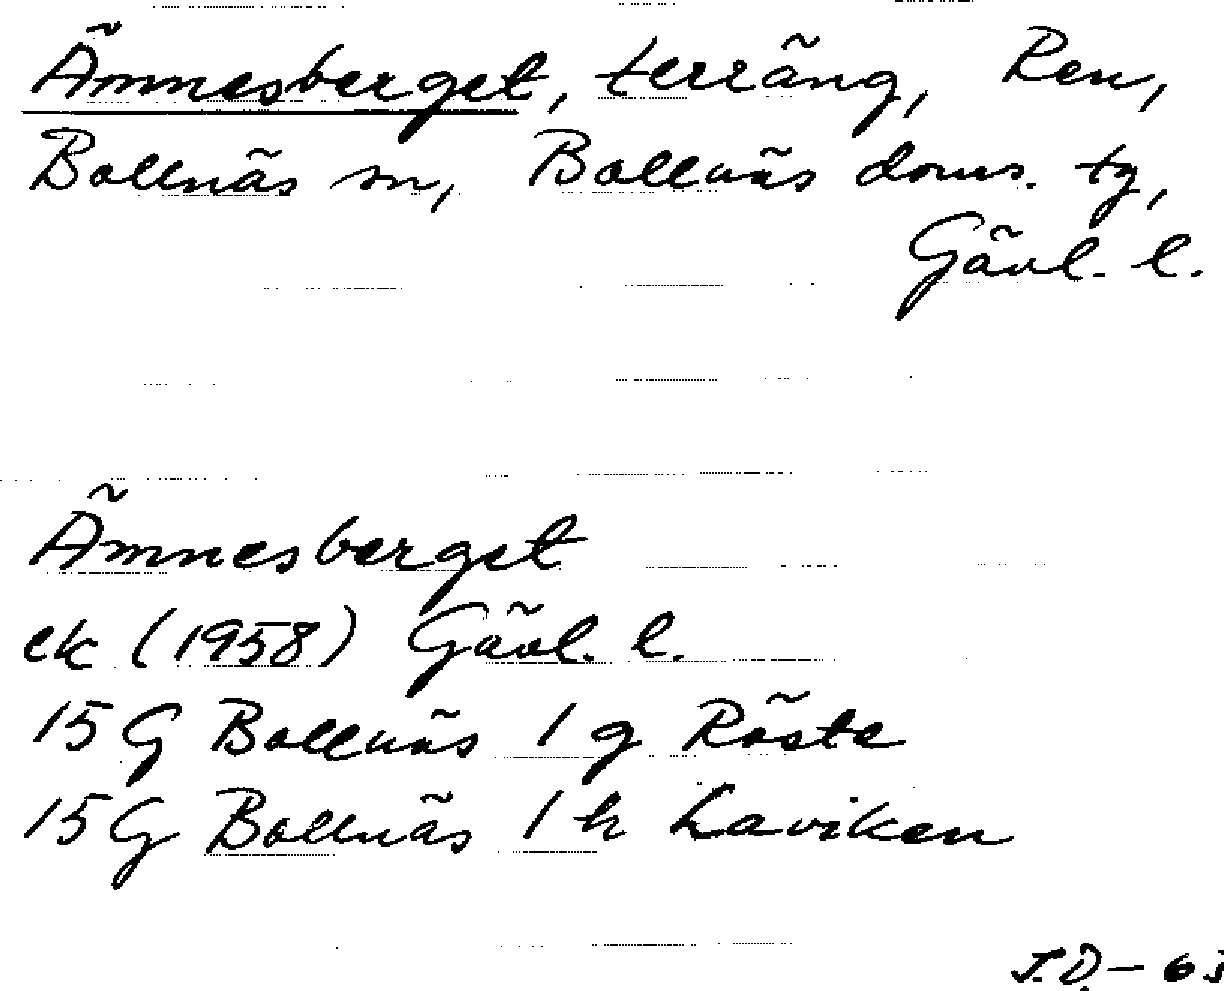 Ämnesberget, terräng, Ren,
Bollnäs sn, Bollnäs doms. tg,
Gävl. l.
Ämnesberget
ek (1958) Gävl. l.
15 G Bollnäs 1 g Röste
15 G Bollnäs 1 h Laviken
J.D. -